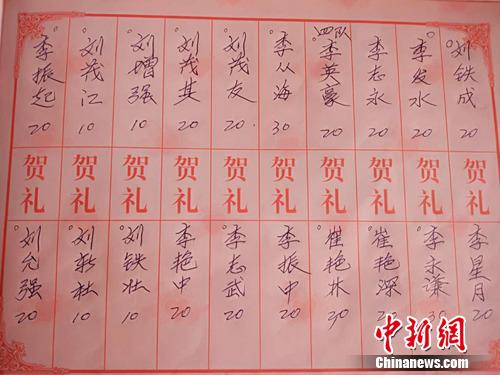 李振起 刘茂江 刘增强 刘茂其 刘茂友 李从海 四队李英豪 李志永 李发水 刘铁成
20 10 10 20 20. 30 20 20 20 20
贺礼 贺礼 贺礼 贺礼 贺礼 贺礼 贺礼 贺礼 贺礼 贺礼
刘允强 刘新壮 刘铁壮 李艳中 李志武 李振中 崔艳林 崔艳深 李永濂 李星月
20 10 10 20 20 20 30 30 20
中新网
Chinanews.com